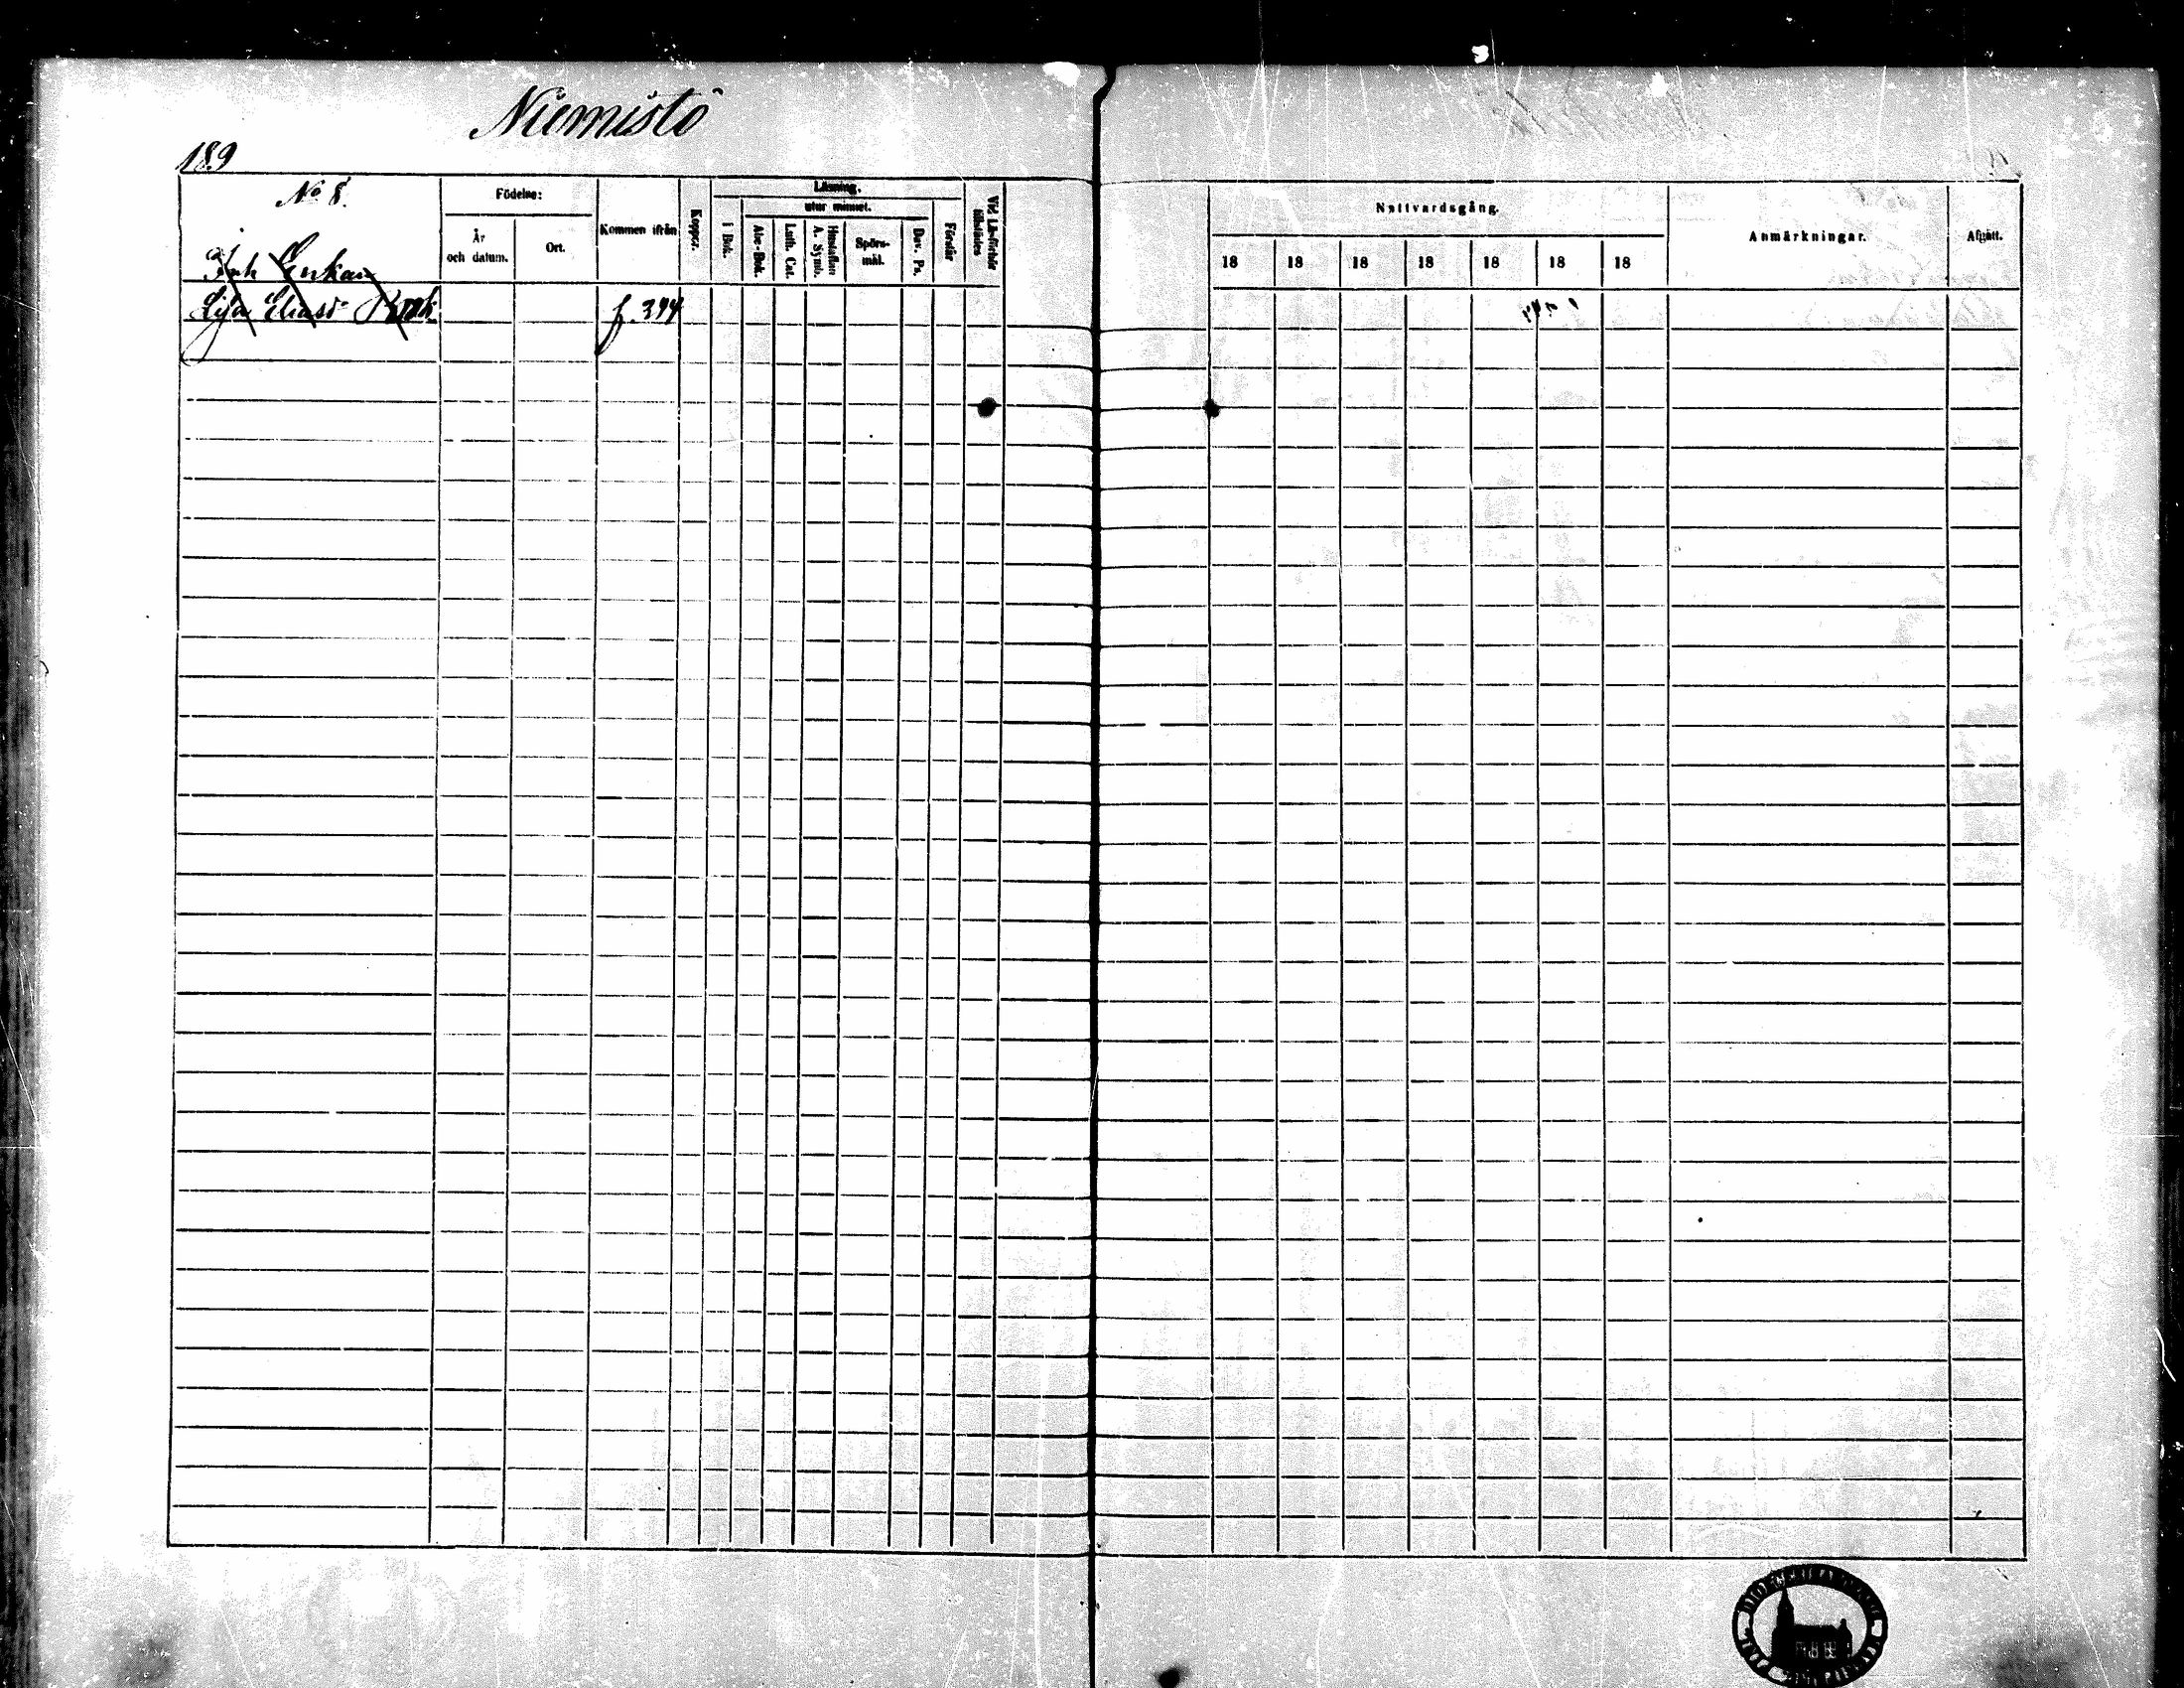 Niemistö
189
No 8.
Födelse:
År och datum.
Ort.
Kommen ifrån
Koppor.
Läsning.
I Bok.
utur minnet.
Abc-Bok.
Luth. Cat.
Hustaflan A. Symb.
Spörs-mål.
Dav. Ps.
Förstår
Vid Läsförhör tillstädes
Enkan
Lisa Eliasd:r
f. 394
Nattvardsgång.
18 18 18 18 18 18 18
Anmärkningar.
Afgått.